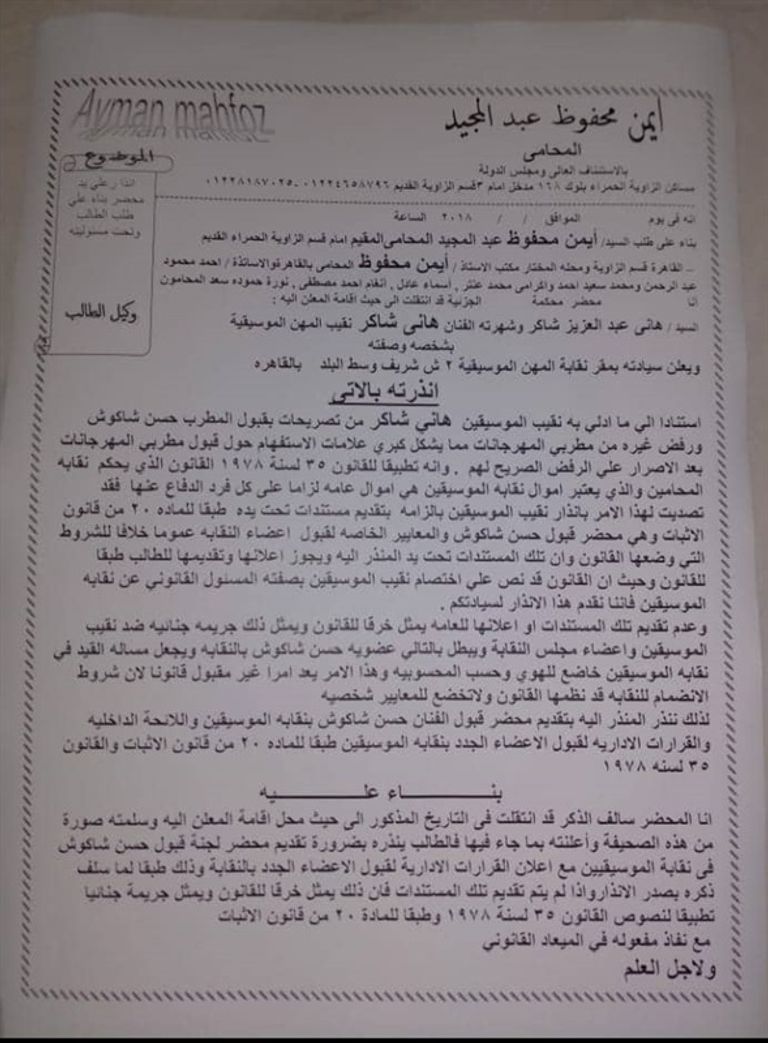 Ayman mahfoz
أيمن محفوظ عبد المجيد
المحامى
بالاستئناف العالى ومجلس الدولة
مساكن الزاوية الحمراء بلوك ١٦٨ مدخل امام ٣ قسم الزاوية القديم ٠١٢٢٤٦٥٨٧٩٦ - ٠١٢٢٨١٨٧٠٢٥
الموضوع
انذار علي يد
محضر بناء علي
طلب الطالب
وتحت مسئوليته
وكيل الطالب
انه فى يوم الموافق / / ٢٠١٨ الساعة
بناء على طلب السيد/ أيمن محفوظ عبد المجيد المحامى المقيم امام قسم الزاوية الحمراء القديم
– القاهرة قسم الزاوية ومحله المختار مكتب الاستاذ / أيمن محفوظ المحامى بالقاهرة والاساتذة / احمد محمود
عبد الرحمن ومحمد سعيد احمد واكرامى محمد عنتر , أسماء عادل , انغام احمد مصطفى , نورة حموده سعد المحامون
أنا محضر محكمة الجزئية قد انتقلت الى حيث اقامة المعلن اليه :
السيد / هانى عبد العزيز شاكر وشهرته الفنان هانى شاكر نقيب المهن الموسيقية
بشخصه وصفته
ويعلن سيادته بمقر نقابة المهن الموسيقية ٢ ش شريف وسط البلد بالقاهره
انذرته بالاتى
استنادا الي ما ادلي به نقيب الموسيقين هاني شاكر من تصريحات بقبول المطرب حسن شاكوش
ورفض غيره من مطربي المهرجانات مما يشكل كبري علامات الاستفهام حول قبول مطربي المهرجانات
بعد الاصرار علي الرفض الصريح لهم . وانه تطبيقا للقانون ٣٥ لسنة ١٩٧٨ القانون الذي يحكم نقابه
المحامين والذي يعتبر اموال نقابه الموسيقين هي اموال عامه لزاما على كل فرد الدفاع عنها فقد
تصديت لهذا الامر بانذار نقيب الموسيقين بالزامه بتقديم مستندات تحت يده طبقا للماده ٢٠ من قانون
الاثبات وهي محضر قبول حسن شاكوش والمعايير الخاصه لقبول اعضاء النقابه عموما خلافا للشروط
التي وضعها القانون وان تلك المستندات تحت يد المنذر اليه ويجوز اعلانها وتقديمها للطالب طبقا
للقانون وحيث ان القانون قد نص علي اختصام نقيب الموسيقين بصفته المسئول القانوني عن نقابه
الموسيقين فاننا نقدم هذا الانذار لسيادتكم .
وعدم تقديم تلك المستندات او اعلانها للعامه يمثل خرقا للقانون ويمثل ذلك جريمه جنائيه ضد نقيب
الموسيقين واعضاء مجلس النقابة ويبطل بالتالي عضويه حسن شاكوش بالنقابه ويجعل مساله القيد في
نقابه الموسيقين خاضع للهوي وحسب المحسوبيه وهذا الامر يعد امرا غير مقبول قانونا لان شروط
الانضمام للنقابه قد نظمها القانون ولاتخضع للمعايير شخصيه
لذلك ننذر المنذر اليه بتقديم محضر قبول الفنان حسن شاكوش بنقابه الموسيقين واللائحة الداخليه
والقرارات الاداريه لقبول الاعضاء الجدد بنقابه الموسقين طبقا للماده ٢٠ من قانون الاثبات والقانون
٣٥ لسنه ١٩٧٨
بنـــــــاء علـــــــيه
انا المحضر سالف الذكر قد انتقلت فى التاريخ المذكور الى حيث محل اقامة المعلن اليه وسلمته صورة
من هذه الصحيفة وأعلنته بما جاء فيها فالطالب ينذره بضرورة تقديم محضر لجنة قبول حسن شاكوش
فى نقابة الموسيقيين مع اعلان القرارات الادارية لقبول الاعضاء الجدد بالنقابة وذلك طبقا لما سلف
ذكره بصدر الانذار واذا لم يتم تقديم تلك المستندات فان ذلك يمثل خرقا للقانون ويمثل جريمة جنائيا
تطبيقا لنصوص القانون ٣٥ لسنة ١٩٧٨ وطبقا للمادة ٢٠ من قانون الاثبات
مع نفاذ مفعوله في الميعاد القانوني
ولاجل العلم